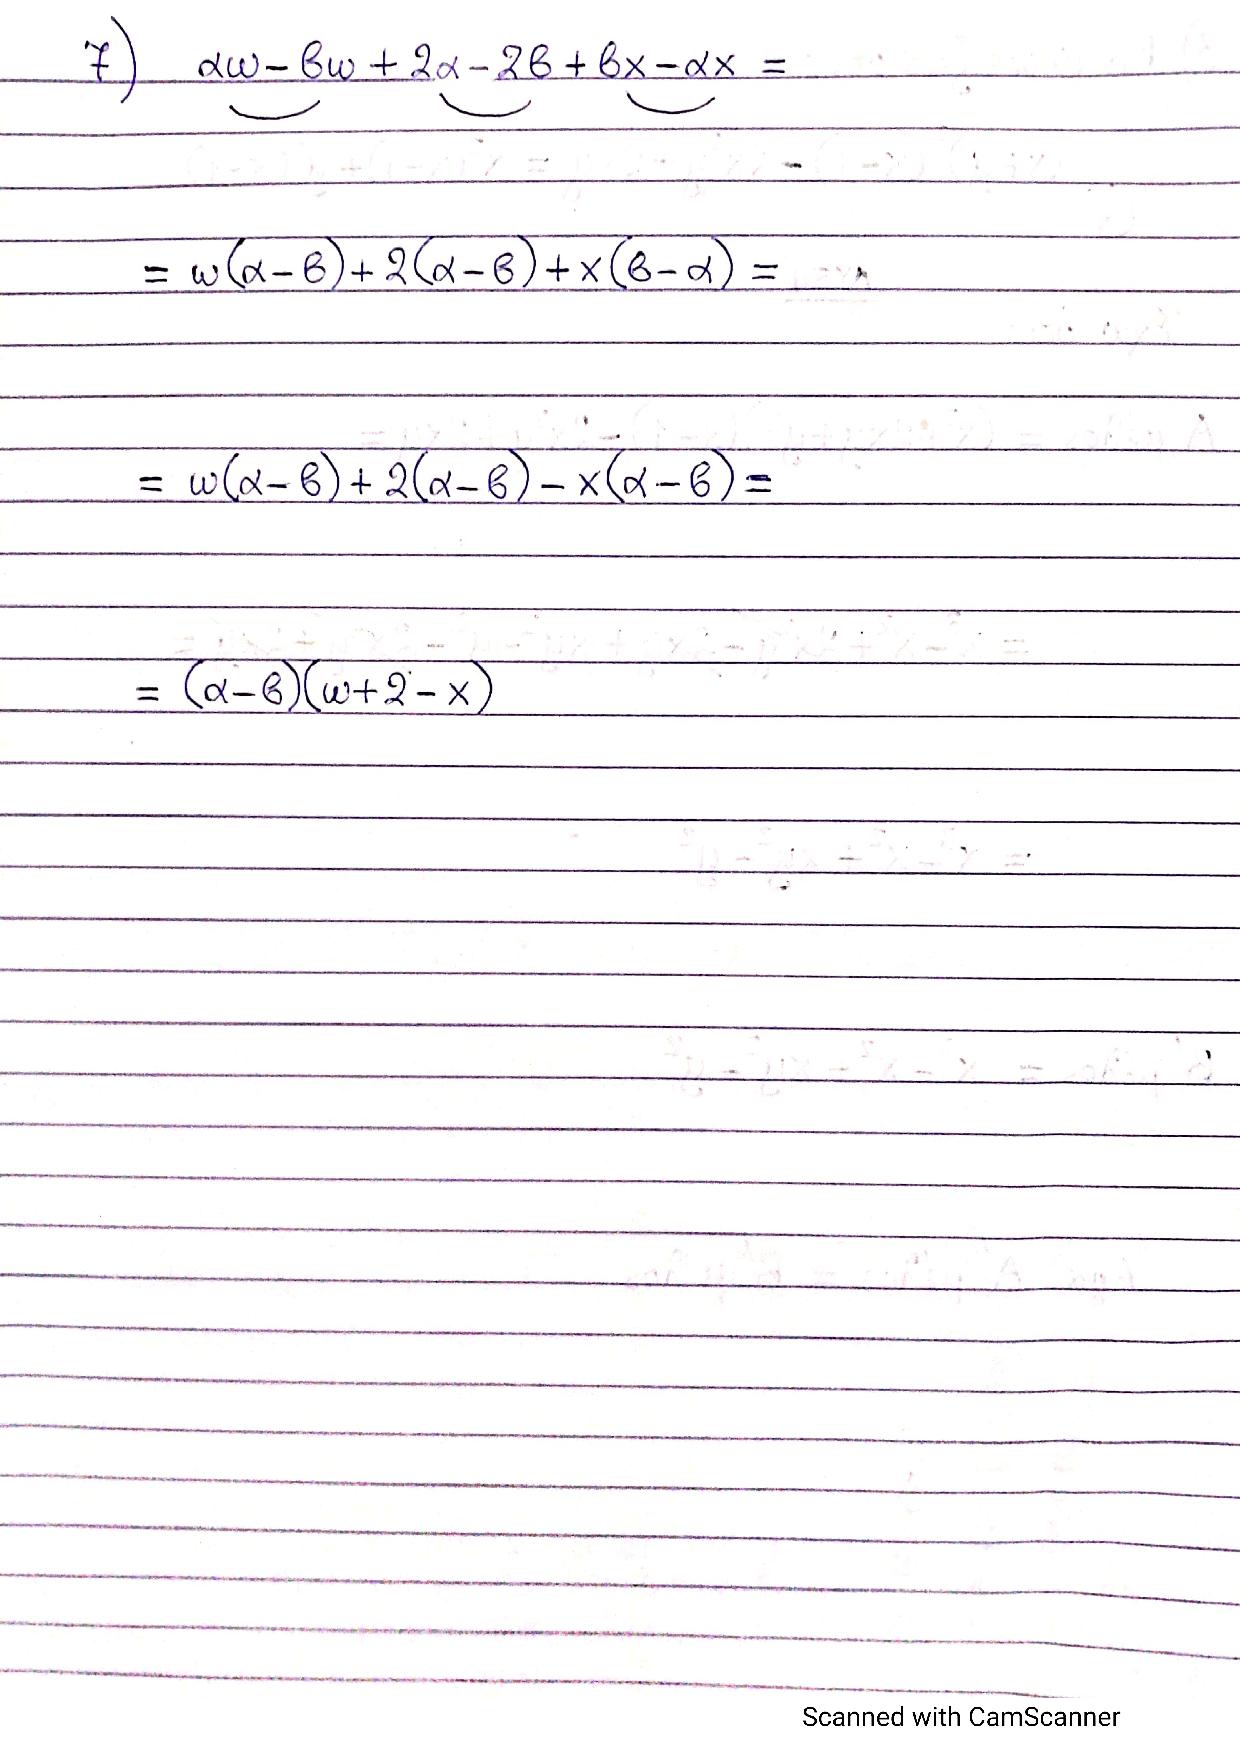 7) αω - βω + 2α - 2β + βx - αx =
= ω(α-β) + 2(α-β) + x(β-α) =
= ω(α-β) + 2(α-β) - x(α-β) =
= (α-β)(ω+2-x)
Scanned with CamScanner